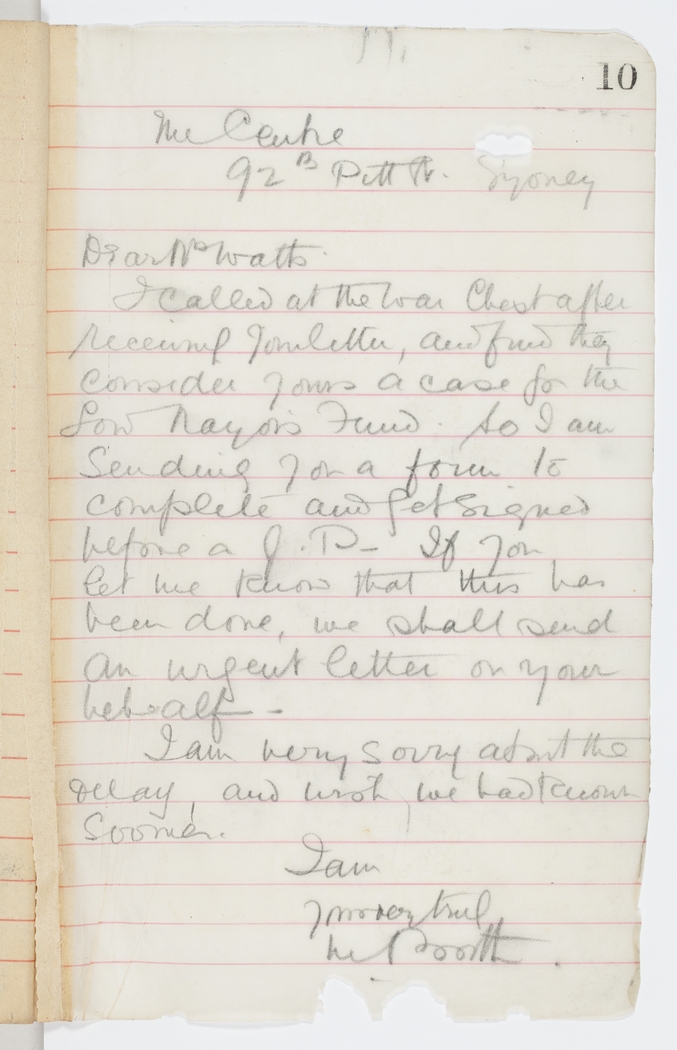 10
The Centre
92B Pitt St. Sydney
Dear Mrs Watts.
I called at the War Chest after
receiving your letter, and find they
consider yours a case for the
Lord Mayor's Fund. So I am
Sending you a form to
complete and get signed
before a J.P- If you
let me know that this has
been done, we shall send
an urgent letter on your
behalf -
I am very sorry about the
delay, and wish we had known
sooner.
I am
yours very truly
M Booth.